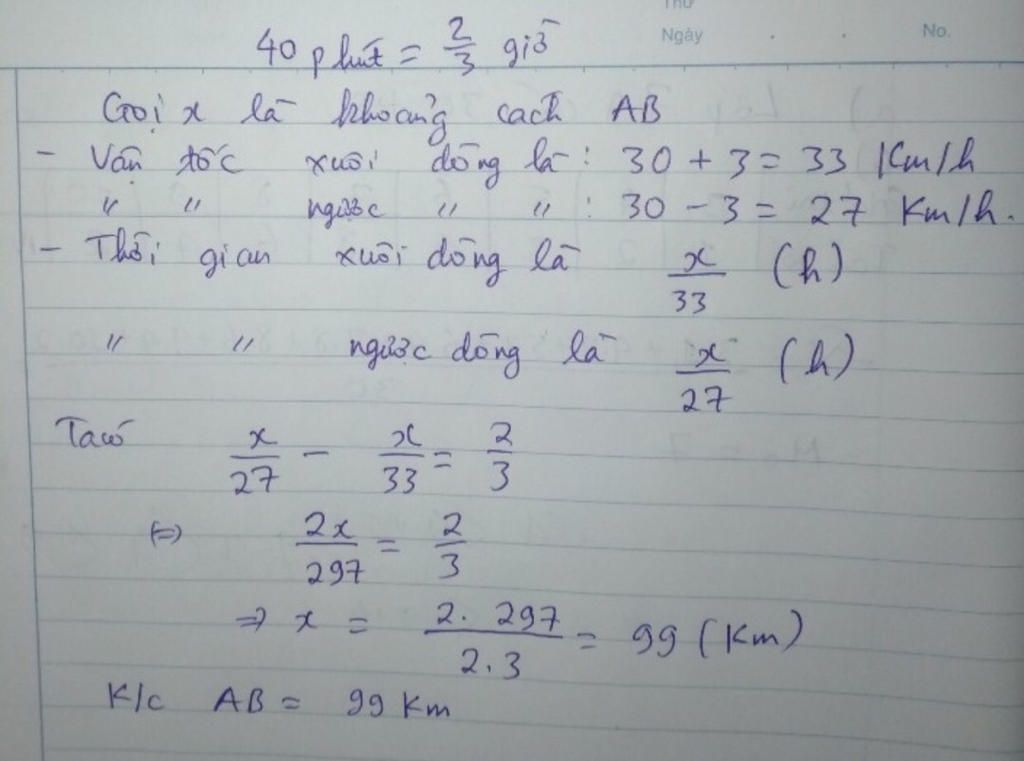 Thứ
Ngày No.
40 phút = 2/3 giờ
Gọi x là khoảng cách AB
- Vận tốc xuôi dòng là : 30 + 3 = 33 Km/h
" " ngược " " : 30 - 3 = 27 Km/h.
- Thời gian xuôi dòng là x/33 (h)
" " ngược dòng là x/27 (h)
Ta có x/27 - x/33 = 2/3
(=) 2x/297 = 2/3
=> x = 2. 297/2.3 = 99 (Km)
K/c AB = 99 Km